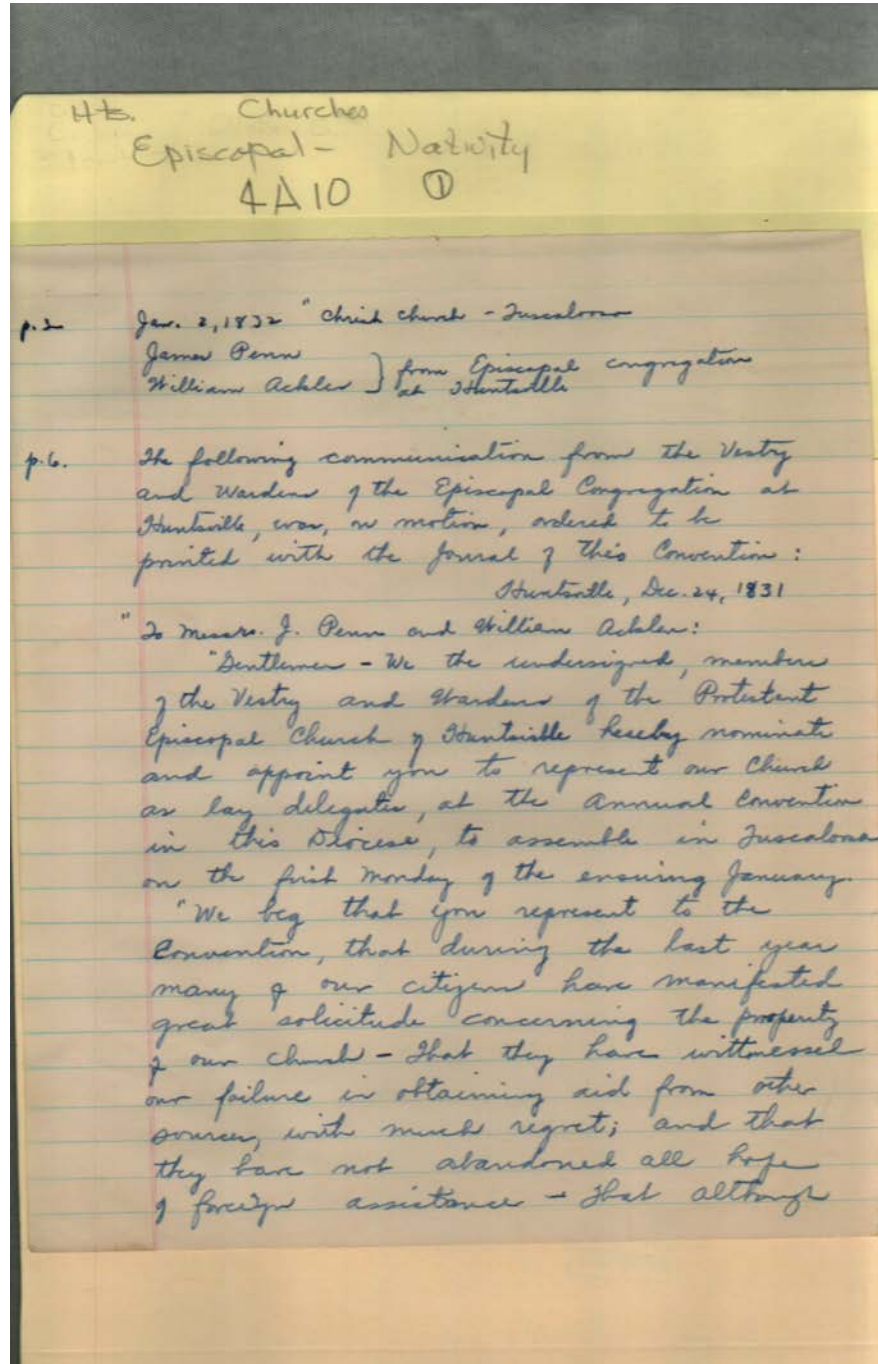 Hts. Churches
Episcopal - Nativity
4A10 ①
p.2 Jan. 2, 1832 " Christ Church - Tuscaloosa
James Penn
William Acklen } from Episcopal congregation at Huntsville
p.6. The following communication from the Vestry
and Wardens of the Episcopal Congregation at
Huntsville, was, on motion, ordered to be
printed with the Journal of this Convention:
Huntsville, Dec. 24, 1831
"To Messrs. J. Penn and William Acklen:
"Gentlemen - We the undersigned, members
of the Vestry and Wardens of the Protestant
Episcopal Church of Huntsville hereby nominate
and appoint you to represent our Church
as lay delegates, at the Annual Convention
in this Diocese, to assemble in Tuscaloosa
on the first Monday of the ensuing January.
"We beg that you represent to the
Convention, that during the last year
many of our citizens have manifested
great solicitude concerning the prosperity
of our church - That they have wittnessed
our failure in obtaining aid from other
sources, with much regret; and that
they have not abandoned all hope
of foreign assistance - That although